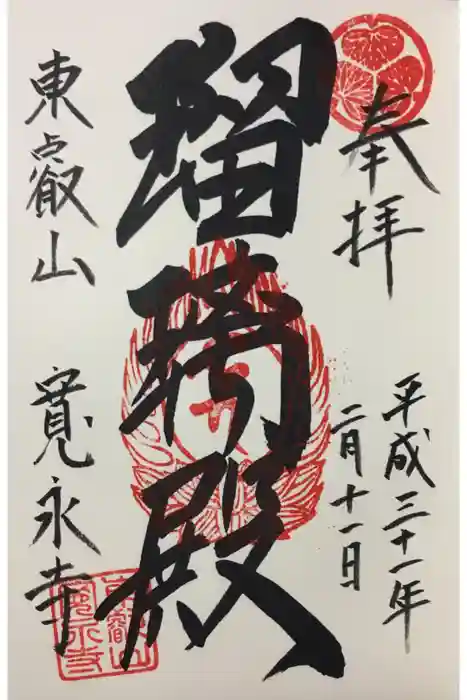 奉拝
平成三十一年
二月十一日
瑠璃殿
東叡山
寛永寺
東叡山
寛永寺